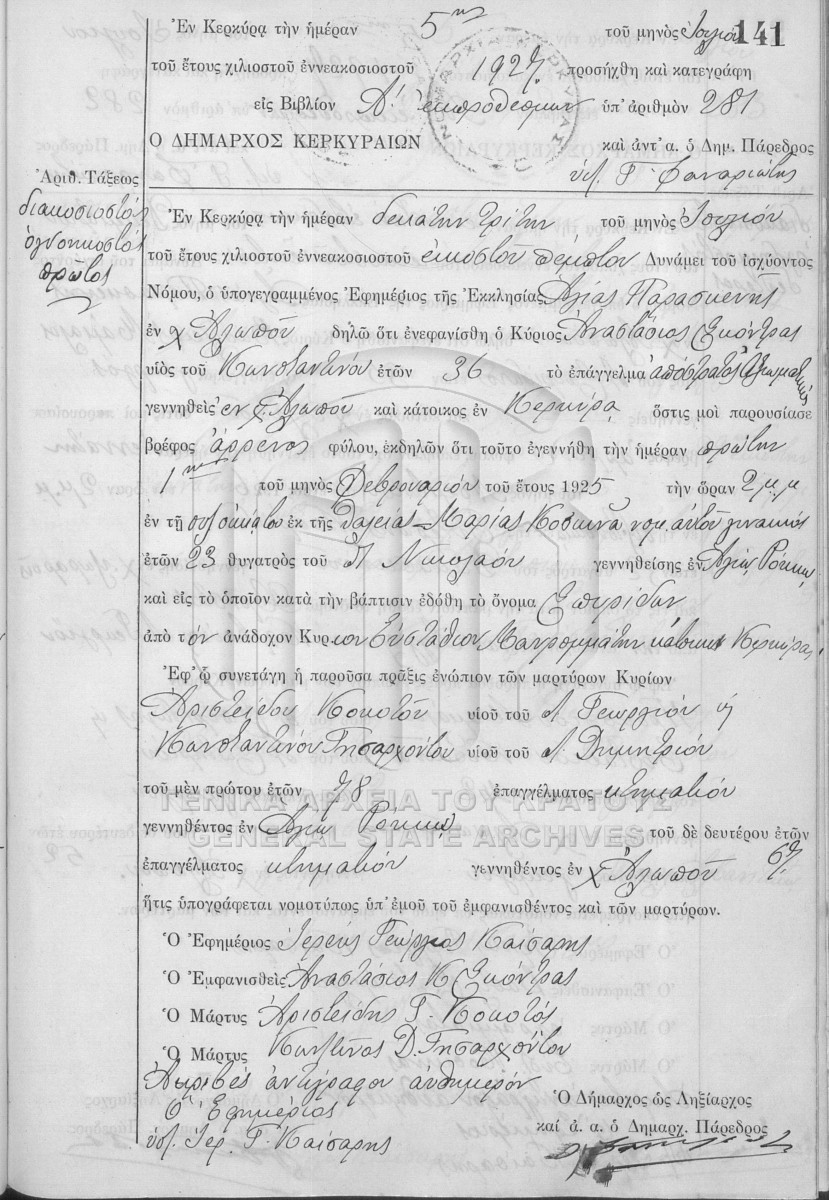 141
Ἐν Κερκύρᾳ τὴν ἡμέραν 5ην τοῦ μηνὸς Ἰουλίου
τοῦ ἔτους χιλιοστοῦ ἐννεακοσιοστοῦ 1927. προσήχθη καὶ κατεγράφη
εἰς Βιβλίον Α' ἐκπροθέσμων ὑπ' ἀριθμὸν 281
Ο ΔΗΜΑΡΧΟΣ ΚΕΡΚΥΡΑΙΩΝ καὶ ἀντ' α. ὁ Δημ. Πάρεδρος
ὑπ. Γ. Φαναριώτης
Ἀριθ. Τάξεως
διακοσιοστός
ὀγδοηκοστός
πρῶτος
Ἐν Κερκύρᾳ τὴν ἡμέραν δεκάτην τρίτην τοῦ μηνὸς Ἰουλίου
τοῦ ἔτους χιλιοστοῦ ἐννεακοσιοστοῦ εἰκοστοῦ πέμπτου Δυνάμει τοῦ ἰσχύοντος
Νόμου, ὁ ὑπογεγραμμένος Ἐφημέριος τῆς Ἐκκλησίας Ἁγίας Παρασκευῆς
ἐν χ Ἀλωποῦ δηλῶ ὅτι ἐνεφανίσθη ὁ Κύριος Ἀναστάσιος Σκόντρας
υἱὸς τοῦ Κωνσταντίνου ἐτῶν 36 τὸ ἐπάγγελμα ἀπόστρατος Ἀξιωματικός
γεννηθεὶς ἐν χ. Ἀλωποῦ καὶ κάτοικος ἐν Κερκύρᾳ ὅστις μοὶ παρουσίασε
βρέφος ἄρρενος φύλου, ἐκδηλῶν ὅτι τοῦτο ἐγεννήθη τὴν ἡμέραν πρώτην
1ην τοῦ μηνὸς Φεβρουαρίου τοῦ ἔτους 1925 τὴν ὥραν 2 μ.μ
ἐν τῇ ἐκ τῆς Θαλείας-Μαρίας Κοσκινᾶ νομ. αὐτοῦ γυναικός
ἐτῶν 23 θυγατρὸς τοῦ Π Νικολάου γεννηθείσης ἐν Ἁγίῳ Ρόκκῳ
καὶ εἰς τὸ ὁποῖον κατὰ τὴν βάπτισιν ἐδόθη τὸ ὄνομα Σπυρίδων
ἀπὸ τὸν ἀνάδοχον Κύριον Εὐστάθιον Μαυρομμάτην κάτοικον Κερκύρας
Ἐφ' ᾧ συνετάγη ἡ παροῦσα πρᾶξις ἐνώπιον τῶν μαρτύρων Κυρίων
Ἀριστείδου Κοκοτοῦ υἱοῦ τοῦ Γεωργίου ἤ
Κωνσταντίνου Γησαρχόντου υἱοῦ τοῦ Δημητρίου
τοῦ μὲν πρώτου ἐτῶν 78 ἐπαγγέλματος κτηματίου
ΓΕΝΙΚΑ ΑΡΧΕΙΑ ΤΟΥ ΚΡΑΤΟΥΣ
γεννηθέντος ἐν Ἁγίῳ Ρόκκῳ τοῦ δὲ δευτέρου ἐτῶν 67
GENERAL STATE ARCHIVES
ἐπαγγέλματος κτηματίου γεννηθέντος ἐν χ Ἀλωποῦ
ἥτις ὑπογράφεται νομοτύπως ὑπ' ἐμοῦ τοῦ ἐμφανισθέντος καὶ τῶν μαρτύρων.
Ὁ Ἐφημέριος Ἱερεὺς Γεώργιος Καίσαρης
Ὁ Ἐμφανισθεὶς Ἀναστάσιος Κ Σκόντρας
Ὁ Μάρτυς Ἀριστείδης Γ. Κοκοτός
Ὁ Μάρτυς Κωνστῖνος Δ. Γησαρχόντου
Ἀκριβὲς ἀντίγραφον αὐθημερόν
Ὁ Ἐφημέριος
ὑπ. Ἱερ. Γ. Καίσαρης
Ὁ Δήμαρχος ὡς Ληξίαρχος
καὶ ἀ. α. ὁ Δημαρχ. Πάρεδρος